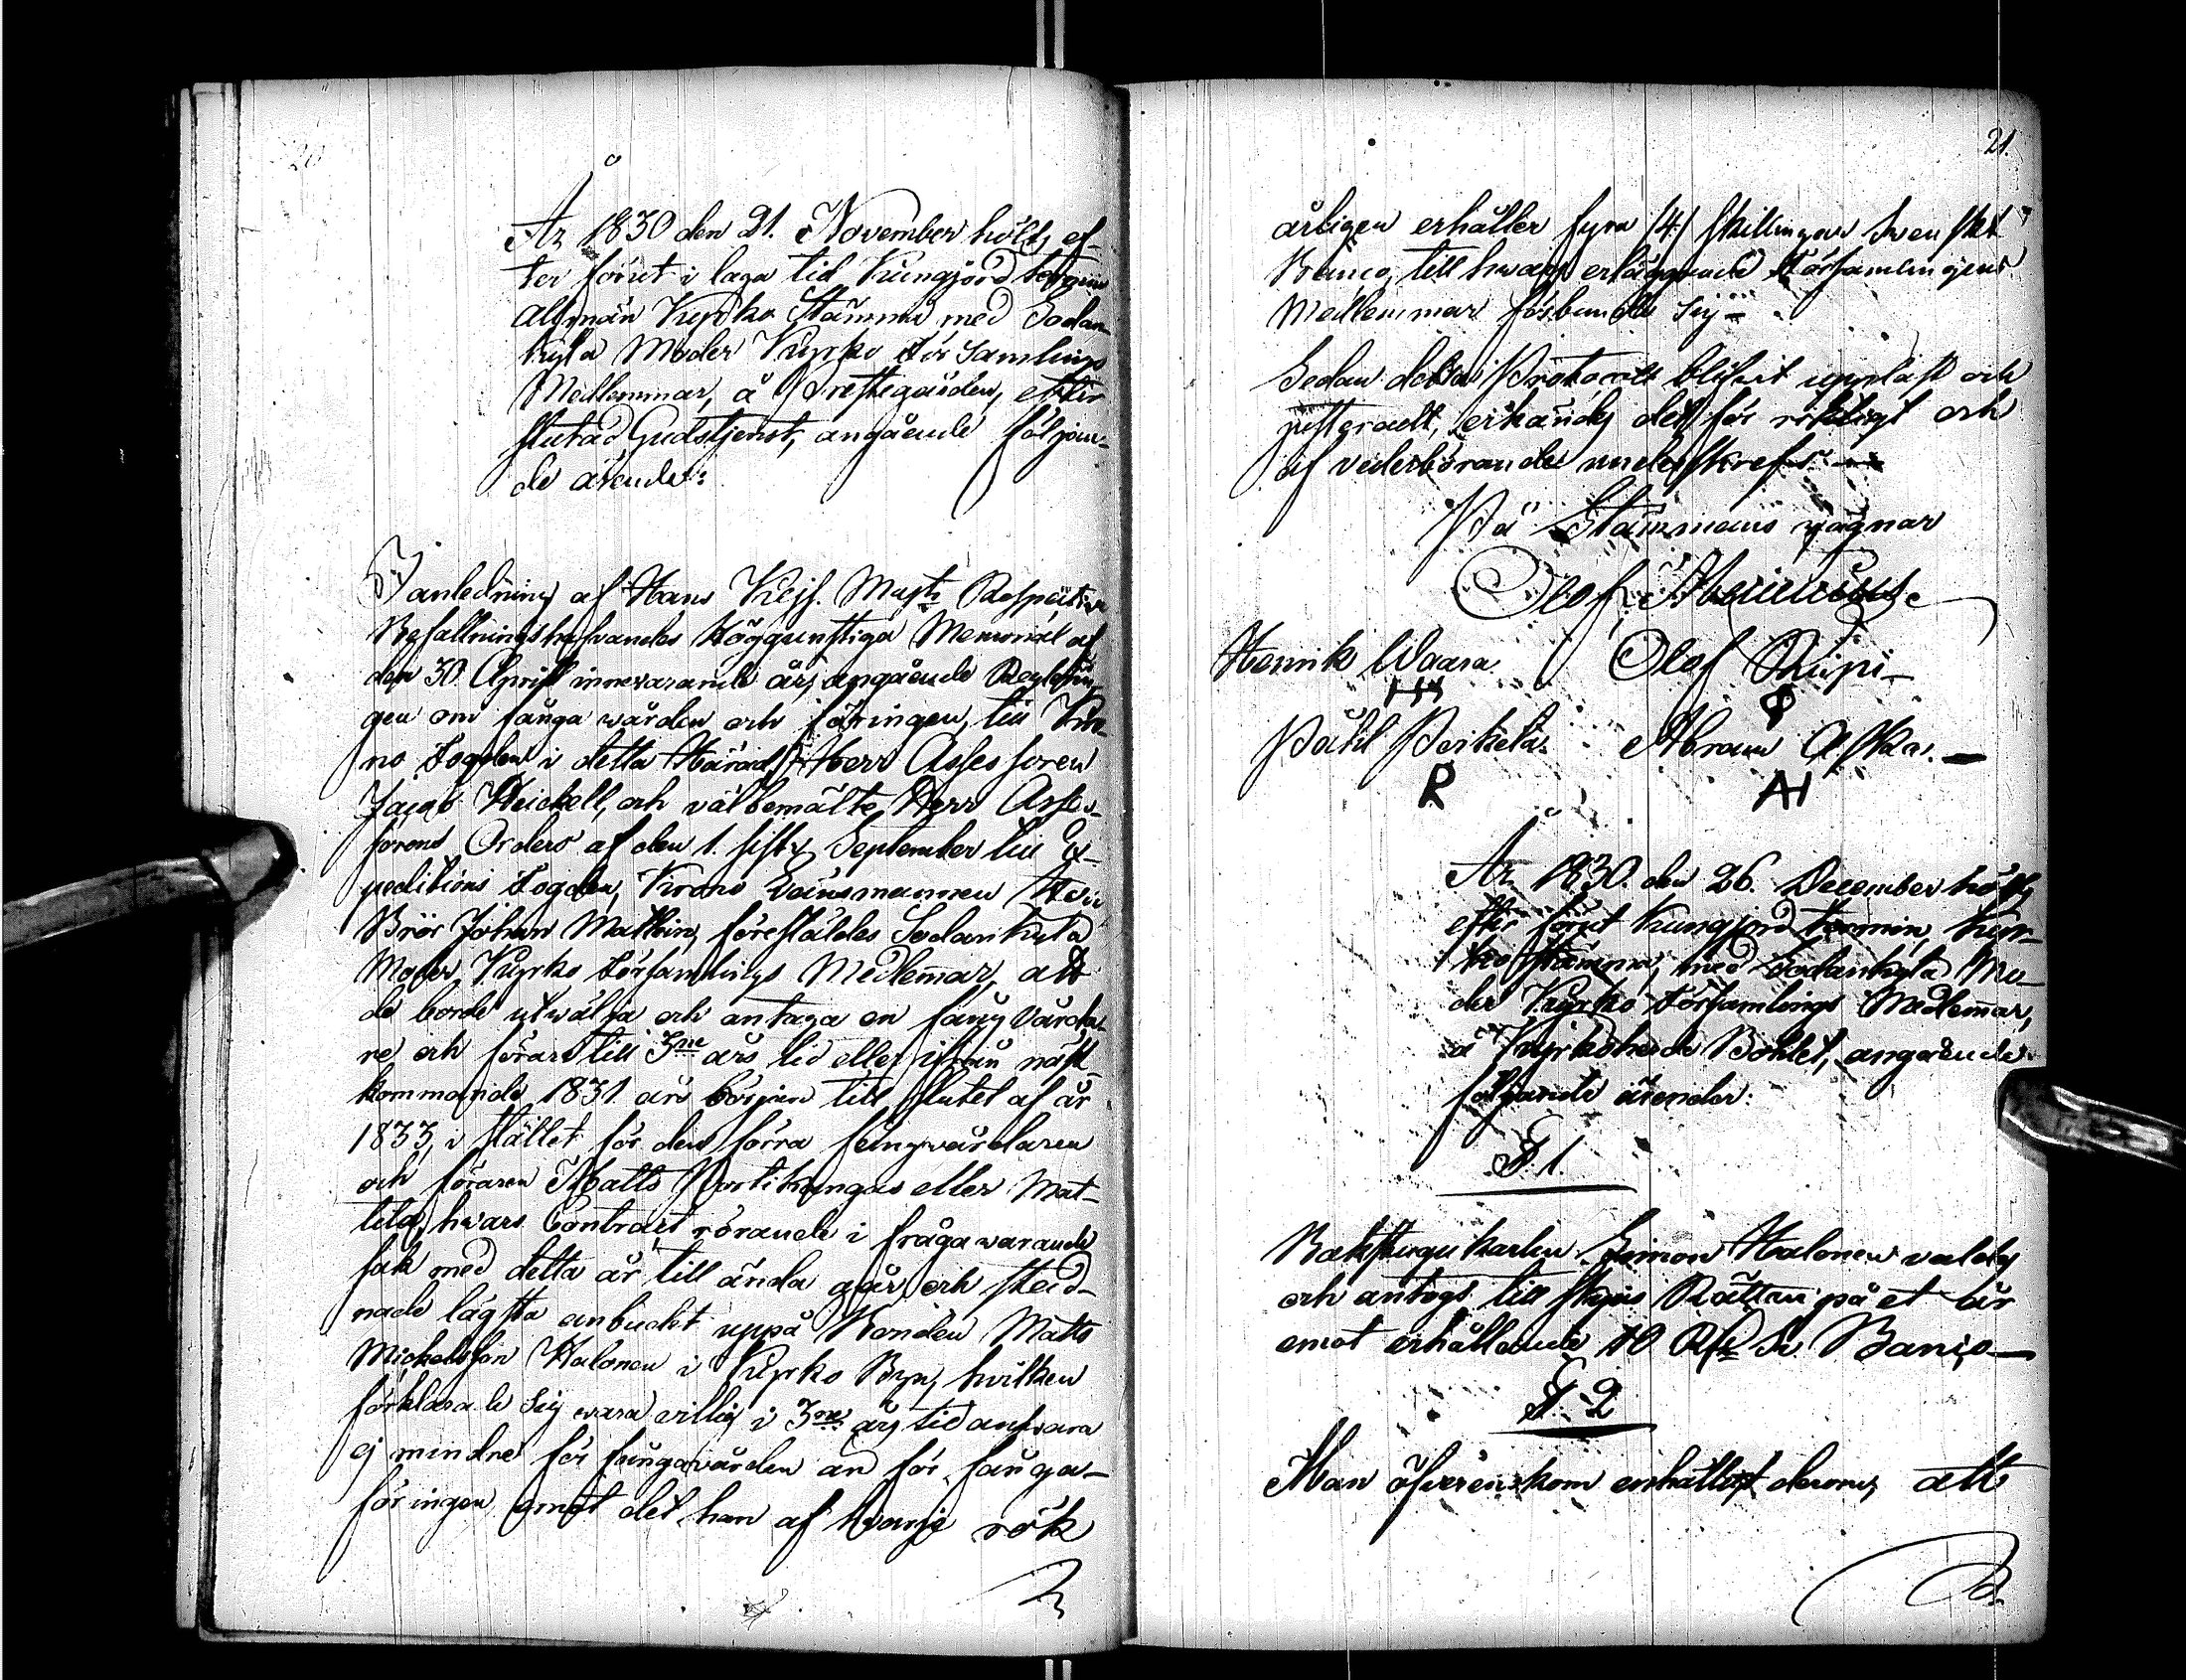 20
År 1830 den 21. November höllts ef-
ter förut i laga tid Kungjord termin
allmän Kyrko Stämma med Sodan-
kylä Moder Kyrko Församlings
Medlemmar, å Prestegården, efter
slutad Gudstjenst, angående följan-
de ärende:
I anledning af Hans Kejs. Majts Respective
Befallningshafvandes Höggunstiga Memorial af
den 30 April innevarande år, angående
gen om fånga wården och föringen, till Kro-
no Fogden i detta Härad Herr Assessoren
Jacob Keickell, och välbemälte Herr Asses-
sorens Orders af den 1. sistl. September till Ex-
peditions Fogden, Krono Länsmannen Herr
Brör Johan Mathein, föreställdes Sodankylä
Moder Kyrko Församlings Medlemar, att
de borde utwälja och antaga en fång vårda-
re och förare till 3ne års tid eller ifrån näst-
kommande 1831 års början till slutet af år
1833, i stället för den förra fångvårdaren
och föraren Matts Portikangas eller Mat-
tila, hwars Contract rörande i fråga warande
sak med detta år till ända går, och stad-
nade lägsta anbudet uppå Bonden Matts
Michelsson Halonen i Kyrko Byn, hvilken
förklarade sig wara villig i 3ne års tid answara
ej mindre för fångavården än för fånga-
föringen, emot det han af hvarje rök
21.
årligen erhåller fyra /4/ skillingar Svenskt
Banco, till hwars erläggande Församlingens
Medlemmar förbundo sig.
Sedan detta Protocoll blifvit uppläst och
justeradt, erkänds det för riktigt och
af vederbörande underskrefs.
På Stämmans vägnar
Olof
Henrik Waara Olof Kupi
Påhl Perkelä Abram Aska.
R AH
År 1830. den 26. December hölts
efter förut kungjord termin, Kyr-
ko Stämma, med Sodankylä Mo-
der Kyrko Församlings Medlemar,
å Kyrkoherde Bohlet, angående
följande ärender:
§. 1.
Bakstugukarlen Simon Halonen valdes
och antogs till Rättare på et år
emot erhållande 10 Rd Sv. Banco
§. 2
Man öfverenskom enhälligt derom, att